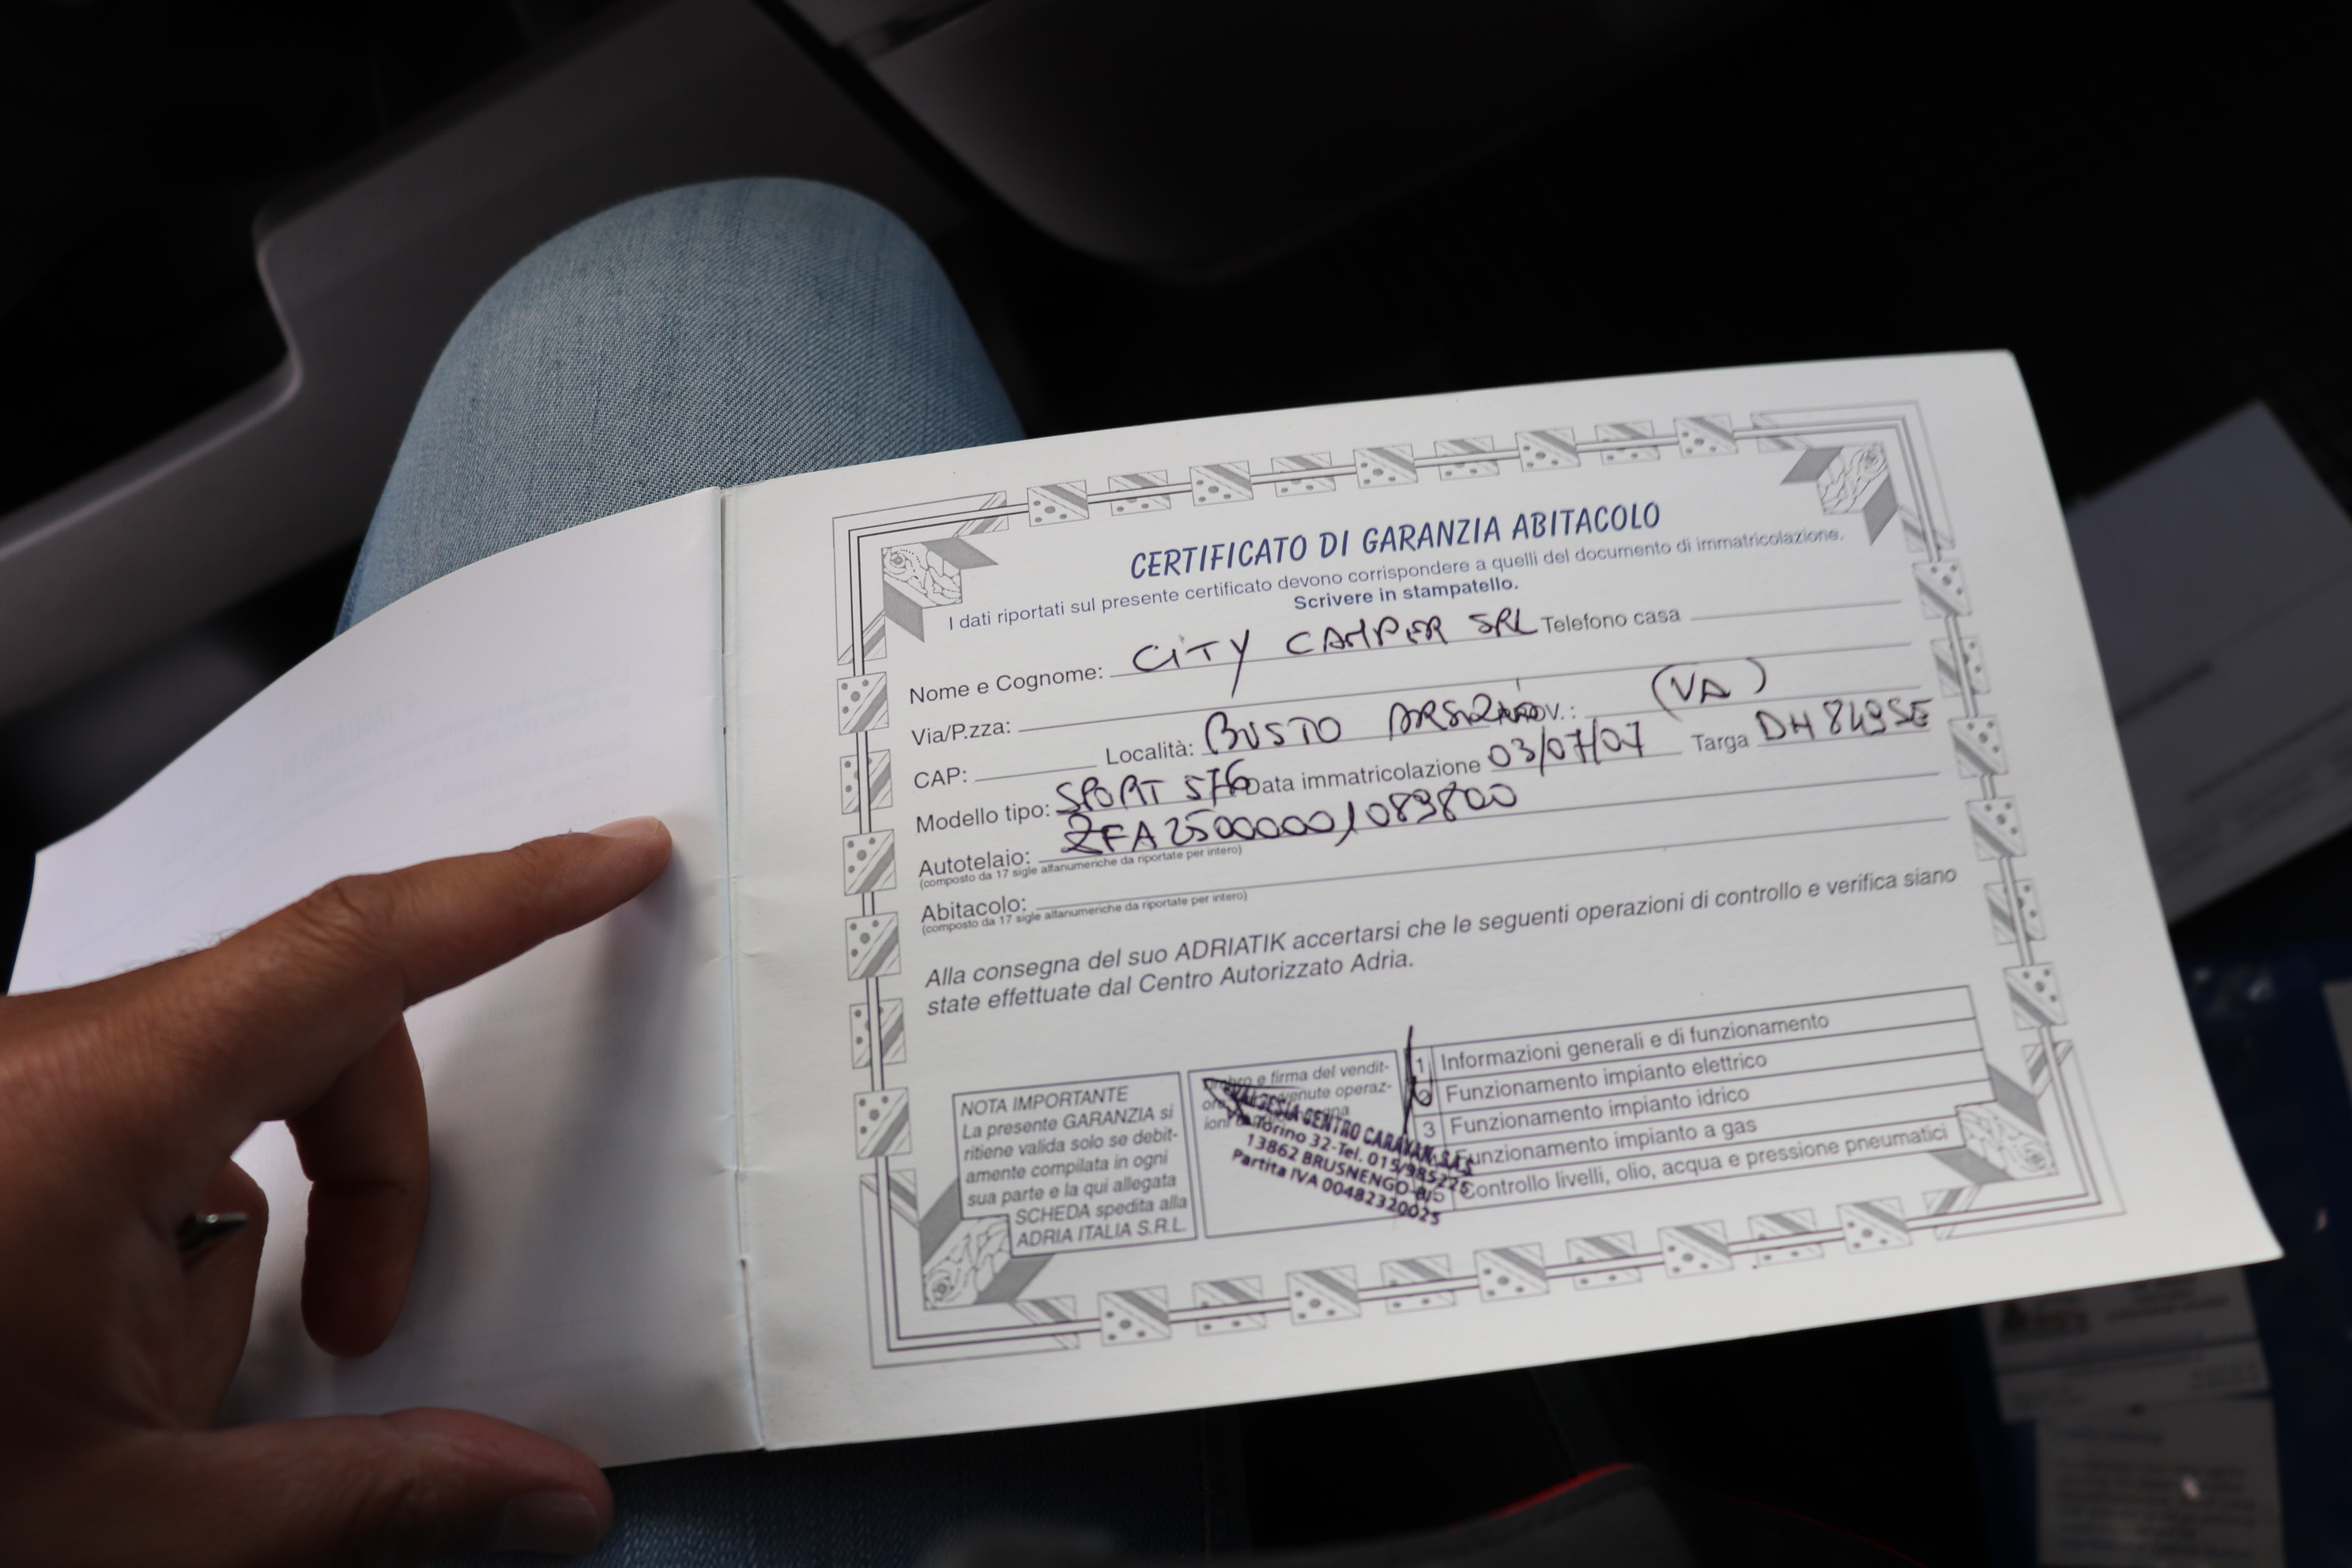 CERTIFICATO DI GARANZIA ABITACOLO
I dati riportati sul presente certificato devono corrispondere a quelli del documento di immatricolazione.
Scrivere in stampatello.
Nome e Cognome: CITY CAMPER SRL Telefono casa
Via/P.zza:
CAP: Località: BUSTO (VA)
Modello tipo: SPORT 576 Data immatricolazione 03/07/07 Targa DH 849SE
Autotelaio:
(composto da 17 sigle alfanumeriche da riportate per intero)
Abitacolo:
(composto da 17 sigle alfanumeriche da riportate per intero)
Alla consegna del suo ADRIATIK accertarsi che le seguenti operazioni di controllo e verifica siano
state effettuate dal Centro Autorizzato Adria.
NOTA IMPORTANTE
La presente GARANZIA si
ritiene valida solo se debit-
amente compilata in ogni
sua parte e la qui allegata
SCHEDA spedita alla
ADRIA ITALIA S.R.L.
e firma del vendit-
CENTRO CARAVAN S.A.S.
Via Torino 32-Tel. 015/985225
13862 BRUSNENGO
Partita IVA 00482320025
1 Informazioni generali e di funzionamento
Funzionamento impianto elettrico
3 Funzionamento impianto idrico
Funzionamento impianto a gas
5 Controllo livelli, olio, acqua e pressione pneumatici